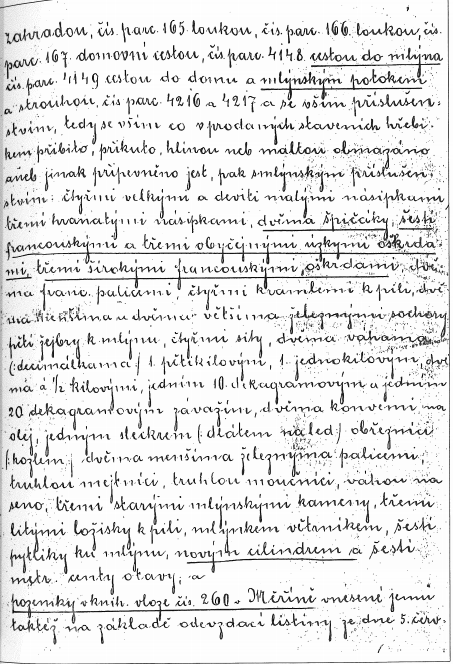 zahradou, čís. parc. 165. loukou, čís. parc. 166. loukou, čís.
parc. 167. domovní cestou, čís. parc. 4148. cestou do mlýna
čís. parc. 4149 cestou do domu a mlýnským potokem
a strouhou, čís parc. 4216 a 4217 a se vším příslušen-
stvím, tedy se vším co v prodaných staveních hřebí-
kem přibito, přikuto, hlínou neb maltou obmazáno
aneb jinak připevněno jest, pak s mlýnským příslušen-
stvím: čtyřmi velkými a devíti malými násipkami,
třemi hranatými násipkami, dvěma špiččíky, šesti
francouskými a třemi obyčejnými úzkými oškrda-
mi, třemi širokými francouskými oškrdami, dvě-
ma franc. palicemi, čtyřmi kramlemi k pile, dvě
ma menšíma a dvěma většíma železnými sochory
pěti žejbry k mlýnu, čtyřmi síty, dvěma váhama
(:decimálkama:) 1. pětikilovým, 1. jednokilovým, dvě
ma á 1/2 kilovými, jedním 10. dekagramovým a jedním
20 dekagramovým závažím, dvěma konvemi na
olej, jedným šleckrem (:dlátem na led:) obřeznicí
(:kozlem:) dvěma menšíma železnýma palicemi,
truhlou mejtnicí, truhlou moučnicí, váhou na
seno, třemi starými mlýnskými kameny, třemi
litými ložisky k pile, mlýnkem větrníkem, šesti
pytlíky ku mlýnu, novým cilindrem a šesti
metr. centy otavy; a
pozemky v knih. vloze čís. 260 v Měříně vnesené jemu
taktéž na základě odevzdací listiny ze dne 5. červ-